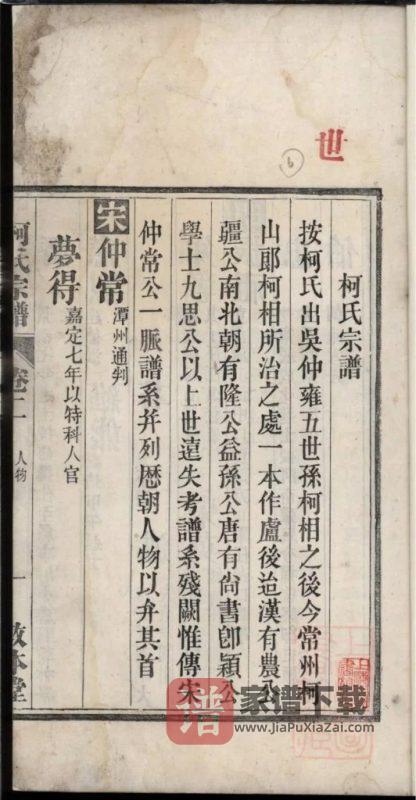 世
6
柯氏宗譜
按柯氏出吳仲雍五世孫柯相之後今常州柯
山郎柯相所治之處一本作盧後迨漢有農公
疆公南北朝有隆公益孫公唐有尚書卽穎公
學士九思公以上世遠失考譜系殘闕惟傳宋
仲常公一脈譜系并列歷朝人物以弁其首
宋仲常 潭州通判
夢得 嘉定七年以特科人官
柯氏宗譜 卷二 人物 一 敦本堂
譜 家谱下载
www.jiaPuXiaZai.com